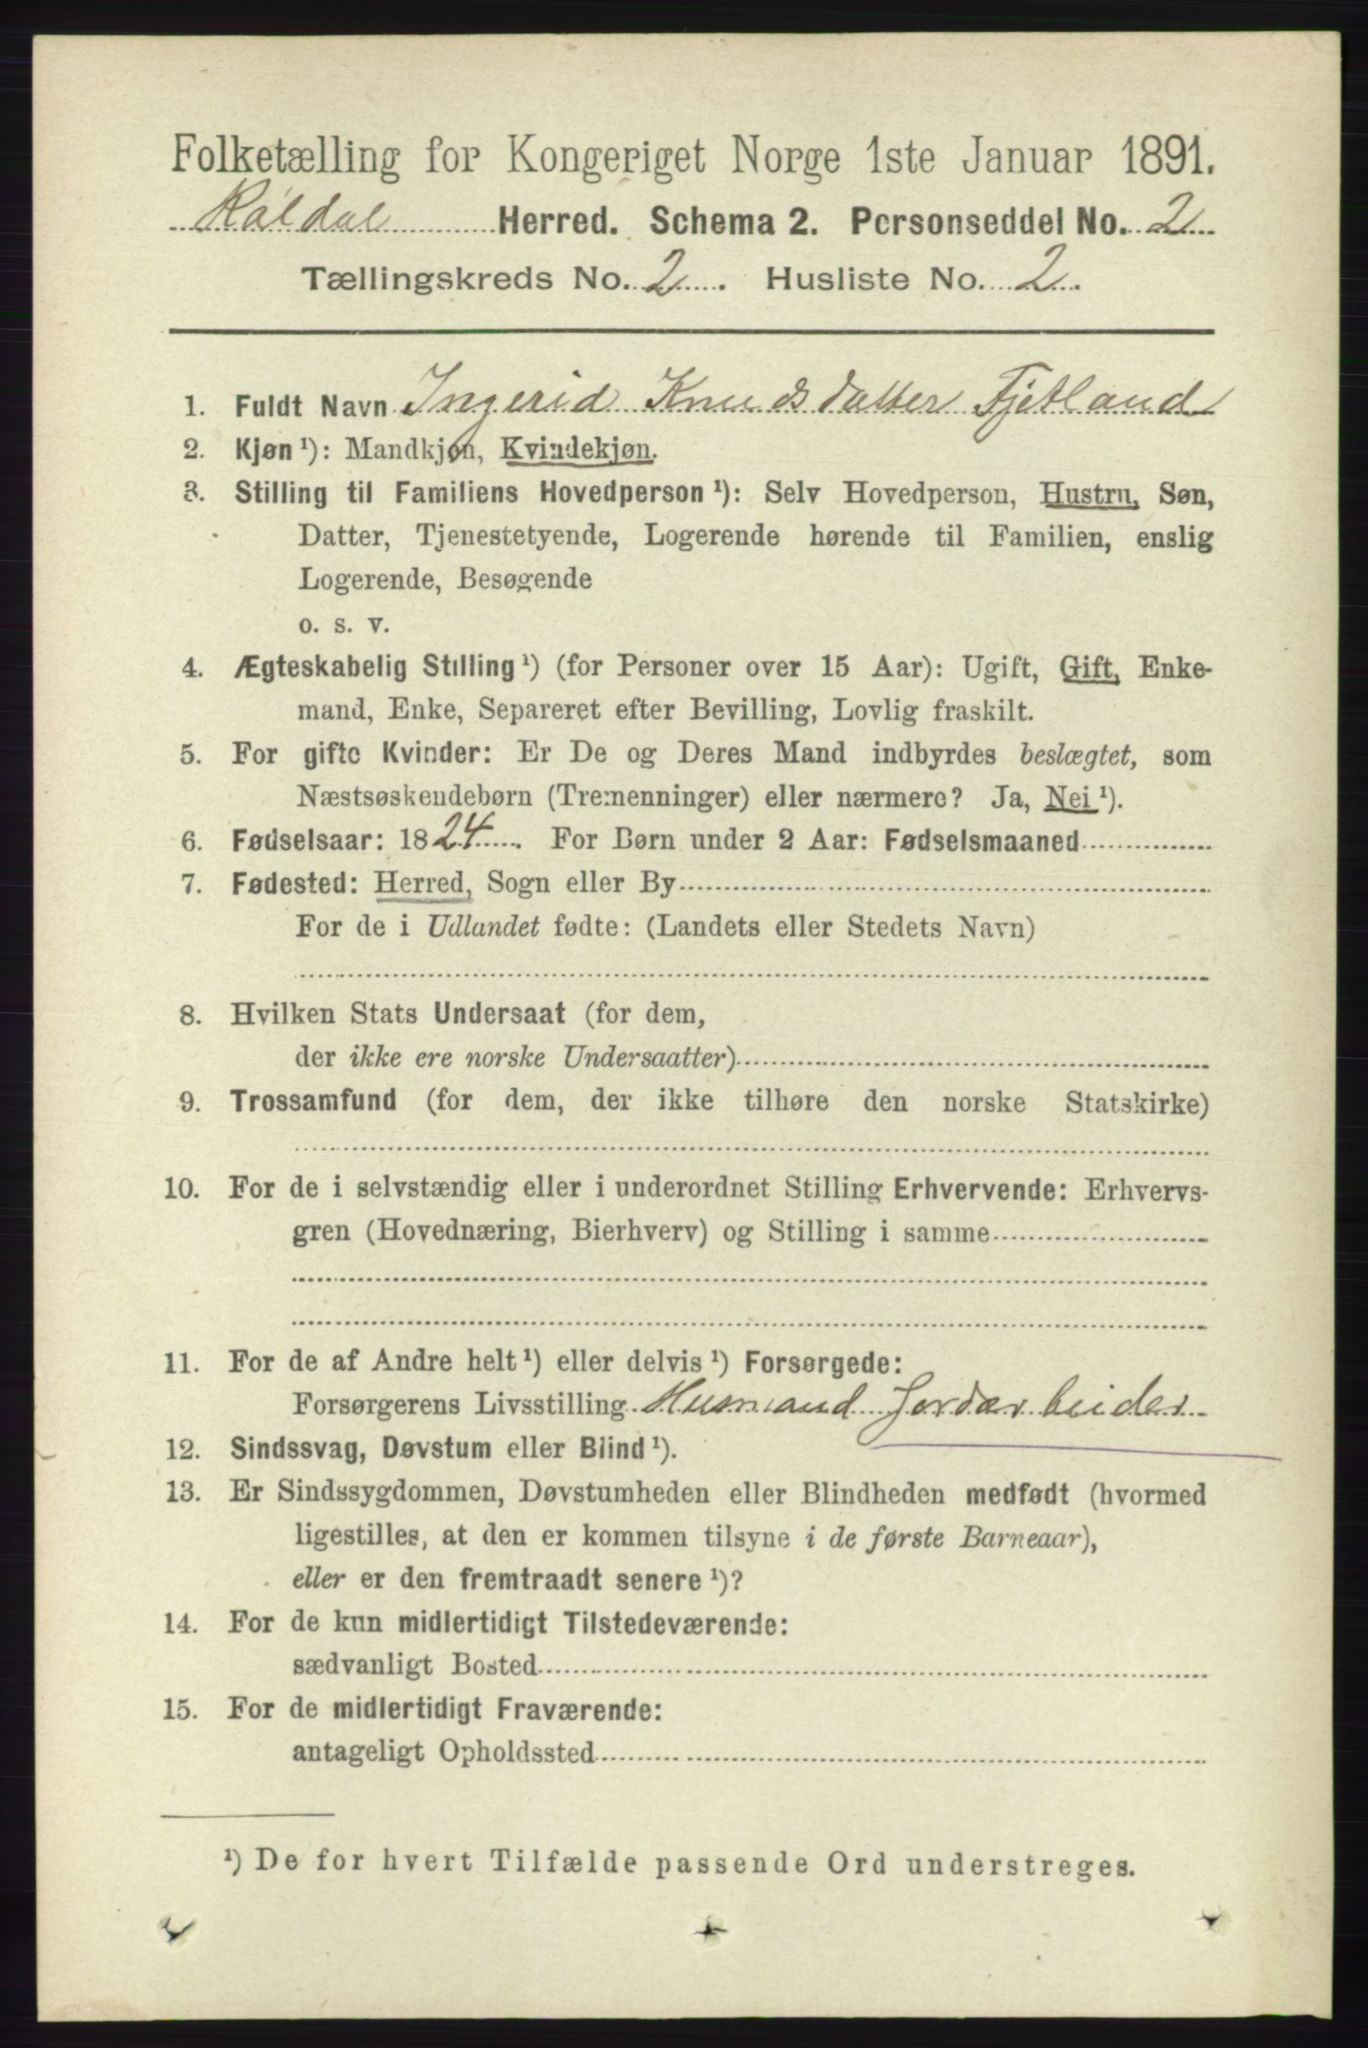 Folketælling for Kongeriget Norge 1ste Januar 1891.
Röldal Herred. Schema 2. Personseddel No. 2
Tællingskreds No. 2. Husliste No. 2.
1. Fuldt Navn Ingerid Knudsdatter Fjetland
2. Kjøn¹): Mandkjøn, Kvindekjøn.
3. Stilling til Familiens Hovedperson¹): Selv Hovedperson, Hustru, Søn,
Datter, Tjenestetyende, Logerende hørende til Familien, enslig
Logerende, Besøgende
o. s. v.
4. Ægteskabelig Stilling¹) (for Personer over 15 Aar): Ugift, Gift, Enke-
mand, Enke, Separeret efter Bevilling, Lovlig fraskilt.
5. For gifte Kvinder: Er De og Deres Mand indbyrdes beslægtet, som
Næstsøskendebørn (Tremenninger) eller nærmere? Ja, Nei¹).
6. Fødselsaar: 1824. For Børn under 2 Aar: Fødselsmaaned
7. Fødested: Herred, Sogn eller By
For de i Udlandet fødte: (Landets eller Stedets Navn)
8. Hvilken Stats Undersaat (for dem,
der ikke ere norske Undersaatter)
9. Trossamfund (for dem, der ikke tilhøre den norske Statskirke)
10. For de i selvstændig eller i underordnet Stilling Erhvervende: Erhvervs-
gren (Hovednæring, Bierhverv) og Stilling i samme
11. For de af Andre helt¹) eller delvis¹) Forsørgede:
Forsørgerens Livsstilling Husmand Jordarbeider
12. Sindssvag, Døvstum eller Blind¹).
13. Er Sindssygdommen, Døvstumheden eller Blindheden medfødt (hvormed
ligestilles, at den er kommen tilsyne i de første Barneaar),
eller er den fremtraadt senere¹)?
14. For de kun midlertidigt Tilstedeværende:
sædvanligt Bosted
15. For de midlertidigt Fraværende:
antageligt Opholdssted
¹) De for hvert Tilfælde passende Ord understreges.